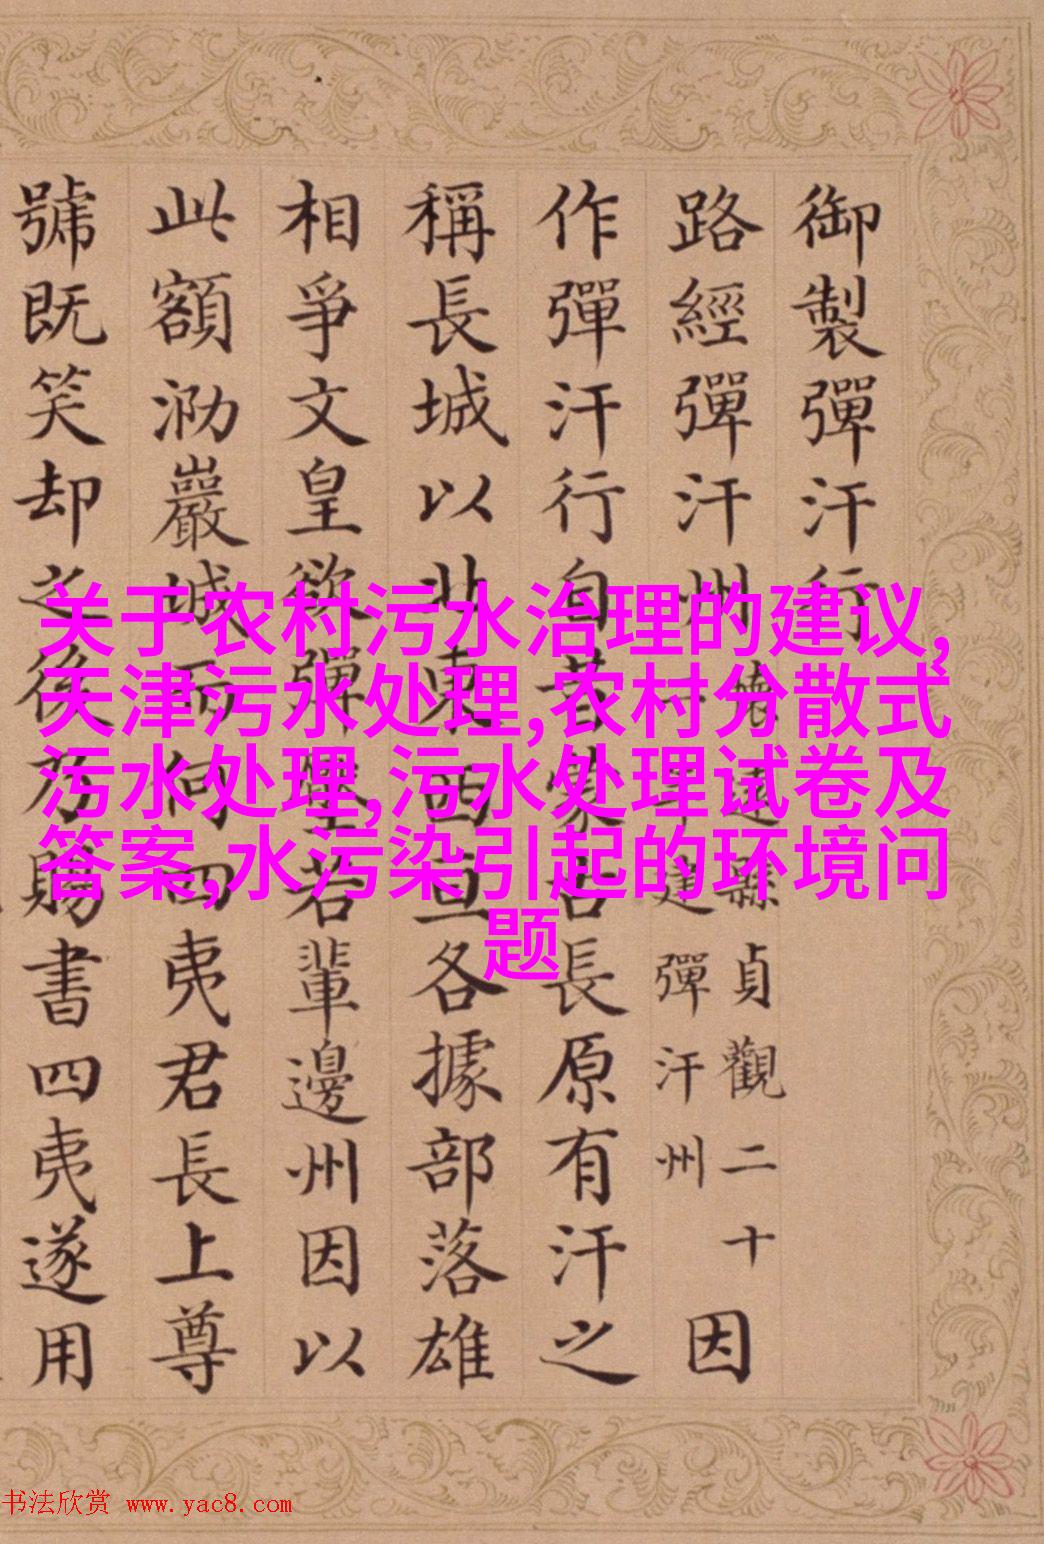 御製彈汗行
路經彈汗州
懷遠縣貞觀二十
一年建彈汗州
因
作彈汗行自昔蒙古長原有汗之
稱長城以北東西亘各據部落雄
相爭文皇欲彈壓若輩邊州因以
此額泐巖城而何四夷君長上尊
號既笑却之後乃賜書四夷遂用
关于农村污水治理的建议,
天津污水处理,农村分散式
污水处理,污水处理试卷及
答案,水污染引起的环境问
题
书法欣赏 www.yac8.com